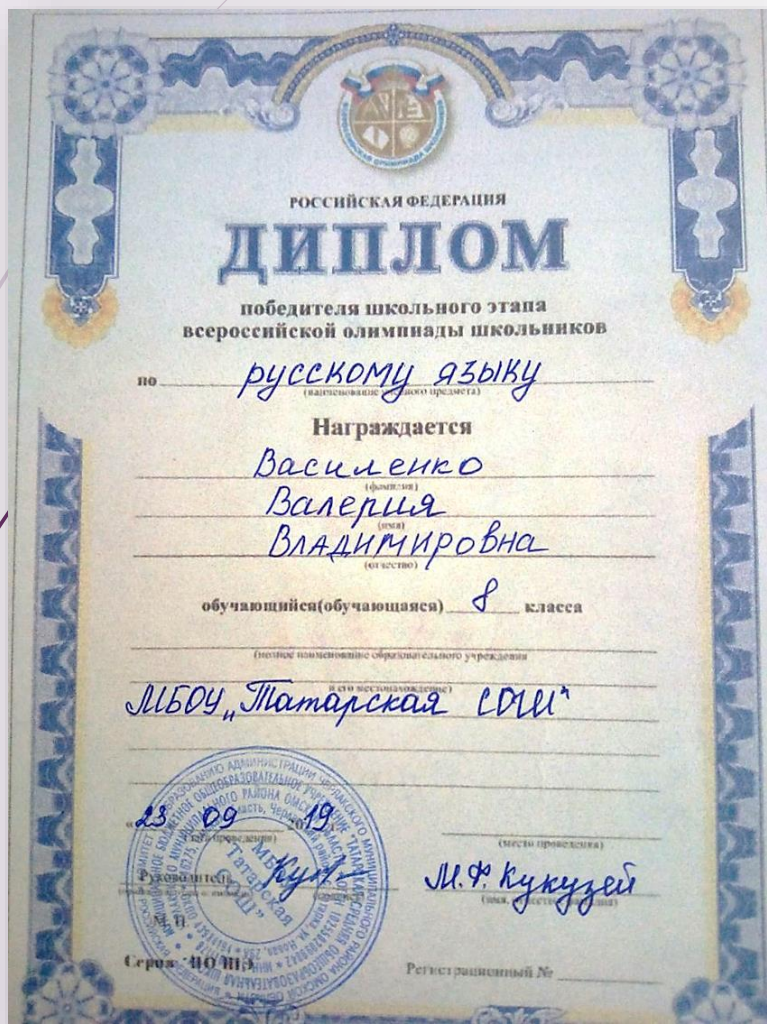 РОССИЙСКАЯ ФЕДЕРАЦИЯ
ДИПЛОМ
победителя школьного этапа
всероссийской олимпиады школьников
по русскому языку
(наименование учебного предмета)
Награждается
Василенко
(фамилия)
Валерия
(имя)
Владимировна
(отчество)
обучающийся(обучающаяся) 8 класса
(полное наименование образовательного учреждения
и его местонахождение)
МБОУ „Татарская СОШ"
«23 09 2019
(дата проведения)
(место проведения)
Руководитель
М.Ф. Кукузей
(подпись)
(имя, отчество, фамилия)
М. П.
МБОУ
Татарская
СОШ”
Серия ПО ШЭ
Регистрационный №